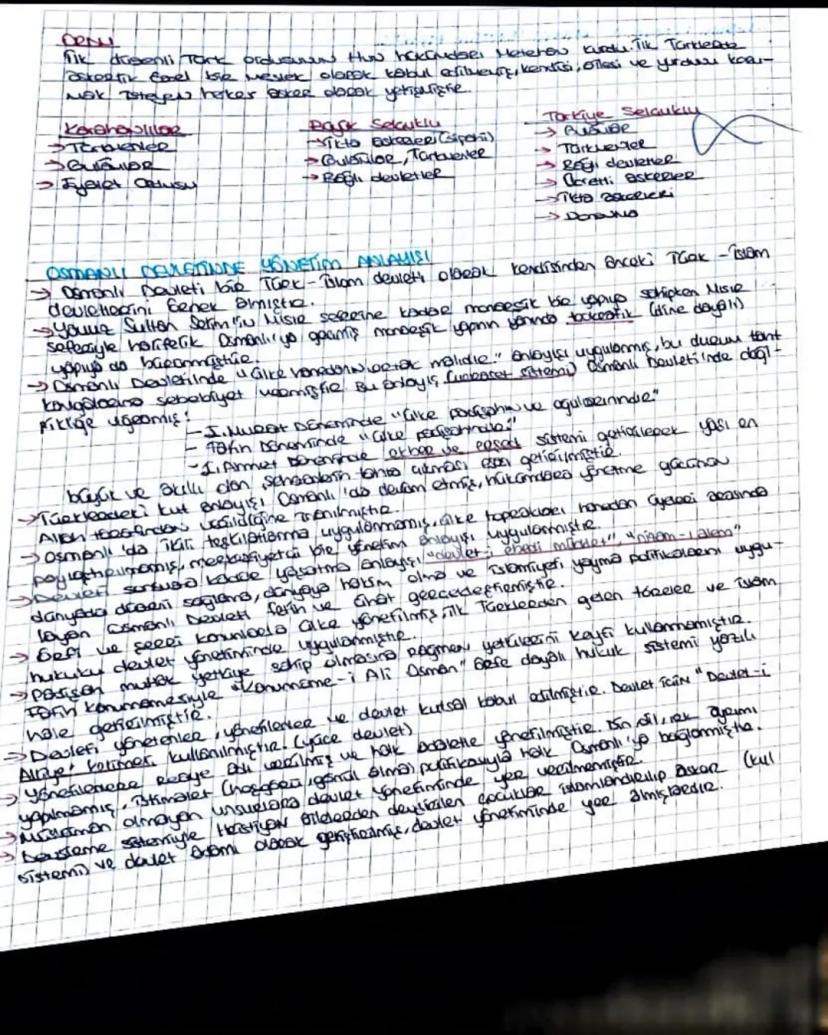 ORDU
İlk düzenli Türk ordusunun Hun hükümdarı Metehan kurdu. İlk Türklerde
askerlik özel bir meslek olarak kabul edilmemiş, kendisi, ailesi ve yurdunu koru-
mak isteyen herkes asker olarak yetişmiştir.
Karahanlılar
→ Türkmenler
→ Gulamlar
→ Eyalet Ordusu
Büyük Selçuklu
→ İkta Askerleri (sipahi)
→ Gulamlar, Türkmenler
→ Bağlı devletler
Türkiye Selçuklu
→ Gulamlar
→ Türkmenler
→ Bağlı devletler
→ Ücretli askerler
→ İkta askerleri
→ Donanma
OSMANLI DEVLETİNDE YÖNETİM ANLAYIŞI
→ Osmanlı Devleti bir Türk-İslam devleti olarak kendisinden önceki Türk-İslam
devletlerini örnek almıştır.
→ Yavuz Sultan Selim'in Mısır seferine kadar monarşik bir yapıya sahipken Mısır
seferiyle halifelik Osmanlı'ya geçmiş monarşik yapının yanında teokratik (dine dayalı)
yapıya da bürünmüştür.
→ Osmanlı Devleti'nde "ülke hanedanın ortak malıdır." anlayışı uygulanmış, bu durum taht
kavgalarına sebebiyet vermiştir. Bu anlayış (veraset sistemi) Osmanlı Devleti'nde değiş-
fikliğe uğramış:
- I. Murat Döneminde "ülke padişahın ve oğullarınındır."
- Fatih Döneminde "ülke padişahındır."
- I. Ahmet Döneminde ekber ve erşat sistemi getirilerek yaşı en
büyük ve akıllı olan şehzadenin tahta çıkması esası getirilmiştir.
→ Türklerdeki kut anlayışı Osmanlı'da devam etmiş, hükümdara yönetme gücünün
Allah tarafından verildiğine inanılmıştır.
→ Osmanlı'da ikili teşkilatlanma uygulanmamış, ülke toprakları hanedan üyeleri arasında
paylaştırılmamış, merkeziyetçi bir yönetim anlayışı uygulanmıştır.
→ Devleti sonsuza kadar yaşatma anlayışı "devlet-i ebed müddet", "nizam-ı alem"
dünyada düzeni sağlama, dünyaya hakim olma ve İslamiyeti yayma politikalarını uygu-
layan Osmanlı Devleti fetih ve cihat gerçekleştirmiştir.
→ Örfi ve şeri kanunlarla ülke yönetilmiş, ilk Türklerden gelen töreler ve İslam
hukuku devlet yönetiminde uygulanmıştır.
→ Padişah mutlak yetkiye sahip olmasına rağmen yetkilerini keyfi kullanmamıştır.
Fatih kanunnamesiyle "Kanunname-i Ali Osman" örfe dayalı hukuk sistemi yazılı
hale getirilmiştir.
→ Devleti yönetenler, yönetilenler ve devlet kutsal kabul edilmiştir. Devlet için "Devlet-i
Aliyye" kullanılmıştır. (yüce devlet)
→ Yönetilenlere Reaya adı verilmiş ve halk adaletle yönetilmiştir. Din, dil, ırk ayrımı
yapılmamış, istimalet (hoşgörü, gönül alma) politikasıyla halk Osmanlı'ya bağlanmıştır.
→ Müslüman olmayan unsurlara devlet yönetiminde yer verilmemiştir.
→ Devşirme sistemiyle Hristiyan ailelerden devşirilen çocuklar islamlaştırılıp asker (kul
sistemi) ve devlet adamı olarak yetiştirilmiş, devlet yönetiminde yer almışlardır.